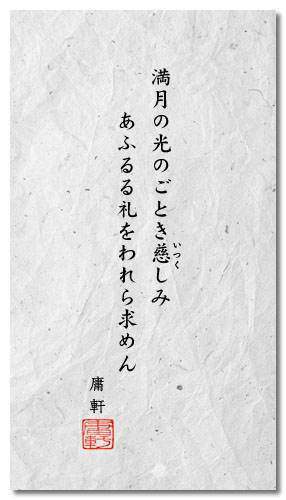 満月の光のごとき慈しみ
いつく
あふるる礼をわれら求めん
庸軒